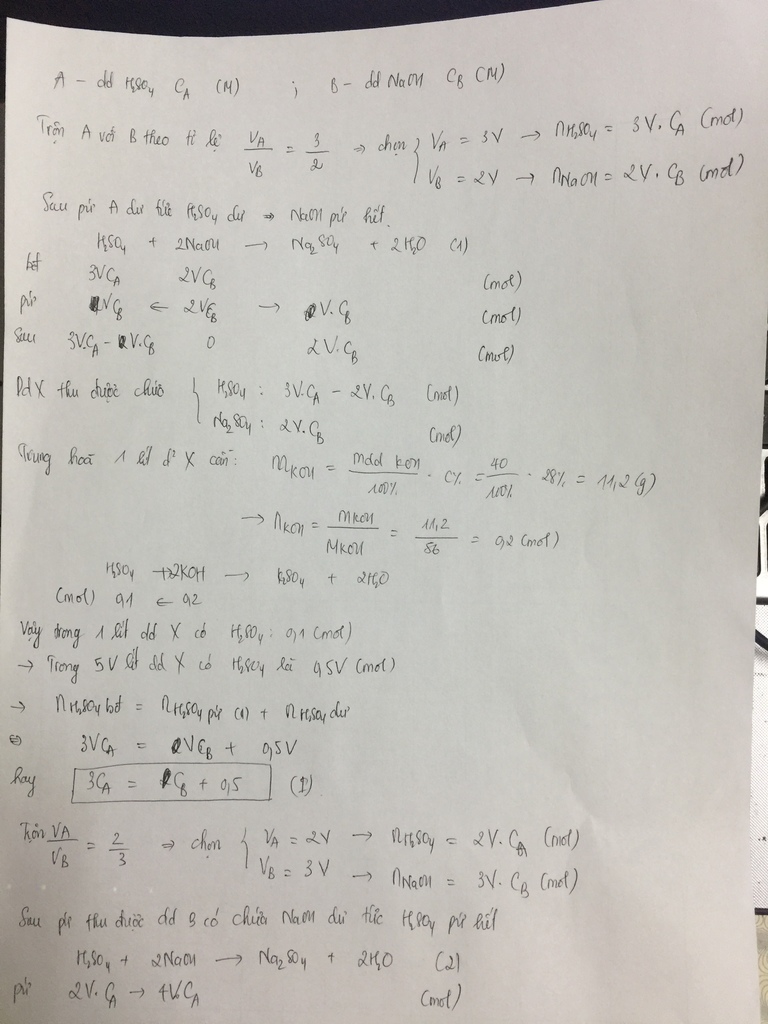 A – dd H₂SO₄ C_A (M) ; B – dd NaOH C_B (M)
Trộn A với B theo tỉ lệ V_A/V_B = 3/2 ⇒ chọn { V_A = 3V → nH₂SO₄ = 3V.C_A (mol)
V_B = 2V → nNaOH = 2V.C_B (mol)
Sau pứ A dư tức H₂SO₄ dư ⇒ NaOH pứ hết.
H₂SO₄ + 2NaOH → Na₂SO₄ + 2H₂O (1)
bđ 3VC_A 2VC_B (mol)
pứ VC_B ← 2VC_B → V.C_B (mol)
Sau 3V.C_A – V.C_B 0 2V.C_B (mol)
Dd X thu được chứa { H₂SO₄ : 3V.C_A – 2V.C_B (mol)
Na₂SO₄ : 2V.C_B (mol)
Trung hoà 1 lít d² X cần: m_KOH = mdd KOH/100% . C% = 40/100% . 28% = 11,2 (g)
→ n_KOH = m_KOH/M_KOH = 11,2/56 = 0,2 (mol)
H₂SO₄ + 2KOH → K₂SO₄ + 2H₂O
(mol) 0,1 ← 0,2
Vậy trong 1 lít dd X có H₂SO₄ : 0,1 (mol)
→ Trong 5V lít dd X có H₂SO₄ là 0,5V (mol)
→ nH₂SO₄ bđ = nH₂SO₄ pứ (1) + nH₂SO₄ dư
⇔ 3VC_A = VC_B + 0,5V
hay 3C_A = C_B + 0,5 (I)
Trộn V_A/V_B = 2/3 ⇒ chọn { V_A = 2V → nH₂SO₄ = 2V.C_A (mol)
V_B = 3V → nNaOH = 3V.C_B (mol)
Sau pứ thu được dd B có chứa NaOH dư tức H₂SO₄ pứ hết
H₂SO₄ + 2NaOH → Na₂SO₄ + 2H₂O (2)
pứ 2V.C_A → 4V.C_A (mol)